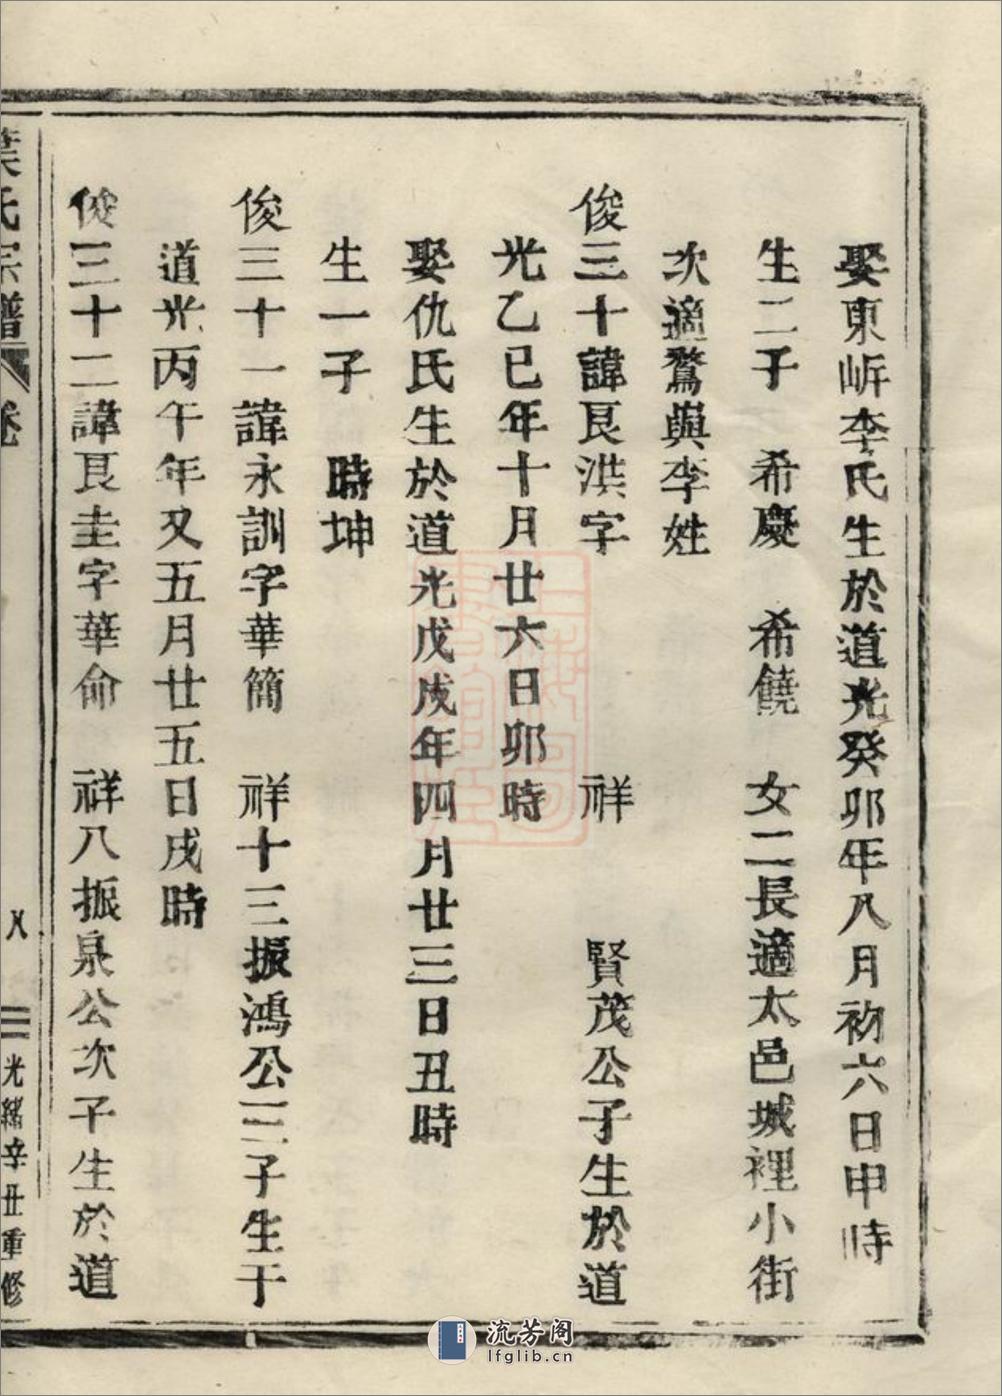 娶東岸李氏生於道光癸卯年八月初六日申時
生二子 希慶 希饒 女二長適太邑城裡小街
次適鶩與李姓
俊三十諱良洪字 祥 賢茂公子生於道
光乙巳年十月廿六日卯時
娶仇氏生於道光戊戌年四月廿三日丑時
生一子 時坤
俊三十一諱永訓字華簡 祥十三振鴻公三子生于
道光丙午年又五月廿五日戌時
俊三十二諱良圭字華命 祥八振泉公次子生於道
葉氏宗譜 卷 八 光緒辛丑重修
流芳阁
lfglib.cn